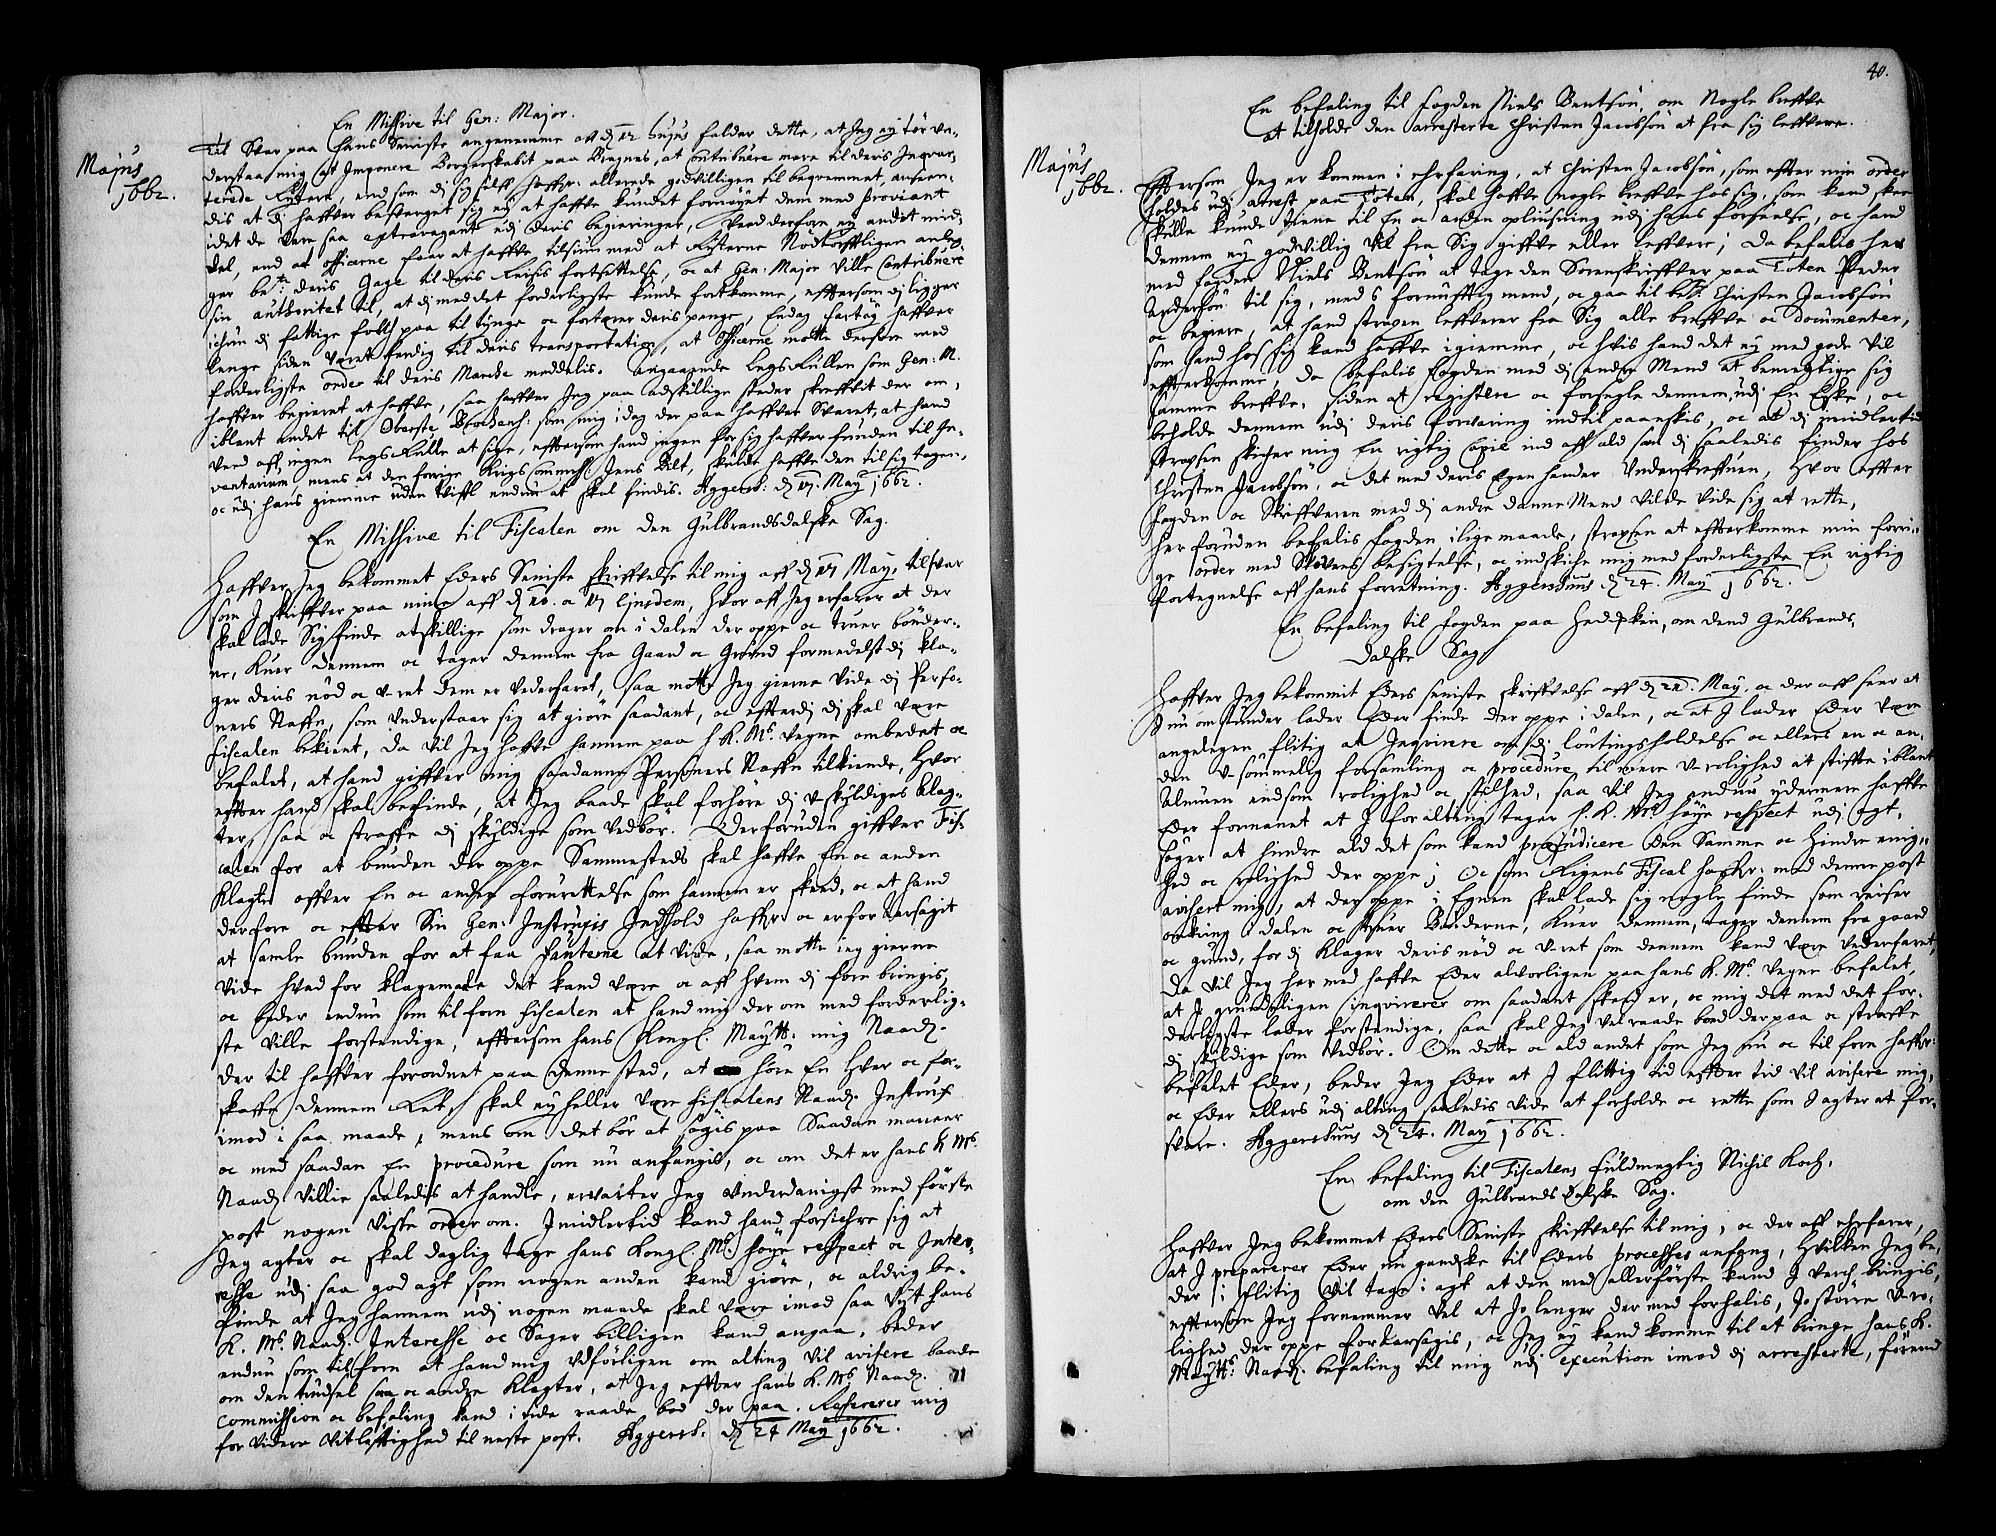 Majus
1662.
En Missive til Gen: Major.
Til Svar paa Hans Seniste angenemme aff dend 12 hujus falder dette, at Jeg ey tør un-
derstaa mig at Imponere Borgerskabet paa Bragnes, at Contribuere mere til deris Inqvar-
terede Rytere, end som dj sig sielff haffver allerede godvilligen til beqvemmet, anseen-
dis at dj haffver besverget sig ej at haffve kundet fornøyet dem med Proviant
idet de vare saa extravagants udj deris begieringer, kand derfore ey andit mid-
del, end at officerne faar at haffve tilsiun med at Rytterne Nødtørffteligen anleg-
ger bete: deris Gage til deris Reises fortsettelse, oc at Gen: Major ville Contribuere
sin authoritet til, at dj med det forderligste kunde fortkomme, efftersom dj ligger
schiøn dj fattige folch paa til tynge oc fortærer deris penge, Endog fartøy haffver
lenge siden været ferdig til deris transportation, at Officerne motte derfore med
forderligste order til deris Marche meddelis. Angaaende LegsRullen som Gen: M.
haffver begieret at haffve, saa haffver Jeg paa adskillige steder skreffvit der om,
iblant andet til Oberste Brochenh: som mig i dag der paa haffver Svaret, at hand
veed aff ingen LegsRulle at sige, efftersom hand ingen for sig haffver funden til In-
ventarium mens at den forige KrigsCommiss: Jens Bilt, skulde haffve den til sig tagen,
oc udj hans giemme uden tviffl endnu at skal findis. Aggersh: d 17. May 1662.
En Missive til Fiscalen om den Gulbrandsdalske Sag.
Haffver Jeg bekommet Eders Seniste skriffvelse til mig aff d 17 May, tilsvar
som J skriffver paa mine aff d 10. oc 17 Ejusdem, hvor aff Jeg erfarer at der
skal lade Sig finde atskillige som drager om i dalen der oppe oc truer bønder-
ne, kuer dennem oc tager dennem fra Gaard oc Grund formedelst dj kla-
ger deris nød oc u-ret dem er vederfaret, saa motte Jeg gierne vide dj Perso-
ners Naffn, som understaar sig at giøre saadant, oc efftterdj dj skal være
Fiscalen bekient, da vil Jeg haffve hannem paa h K. Ms. vegne ombedet oc
befalet, at hand giffver mig saadanne Personers Naffn tilkiende, hvor
effter hand skal befinde, at Jeg baade skal forhøre dj u-skyldiges klag-
ter, saa oc straffe dj skyldige som vedbør. Derforuden giffver Fis-
calen for at bunden der oppe Sammesteds skal haffve En oc anden
Klagte offver En oc anden forurettelse som hannem er skeed, oc at hand
derfore oc effter Sin Gen: Instruxis Indhold haffver oc erfor aarsagit
at samle bunden for at faa Fanterne at vide, saa motte ieg gierne
vide hvad for klagemaale det kand være oc aff hvem dj fore bringis,
oc beder endnu som tilforn Fiscalen at hand mig der om med forderlig-
ste ville forstendige, efftersom hans Kongl. Maytt: mig Naad.
der til haffver forordnet paa denne sted, at høre En hver oc for-
skaffe dennem Ret, skal ey heller være Fiscalens Naad. Instrux
imod i saa maade, mens om det bør at søgis paa Saadan maneer
oc med saadan En procedure som nu anfangis, oc om det er hans K Ms.
Naad. Villie saaledis at handle, ervarter Jeg Underdanigst med første
post nogen visse order om. Imidlertid kand hand forsichre sig at
Jeg agter oc skal daglig tage hans Kongl. Ms. høye respect oc Inter-
esse udj saa god agt som nogen anden kand giøre, oc aldrig be-
finde at Jeg hannem udj nogen maade skal være imod saa vijt hans
K. Ms. Naad. Interesse oc Sager billigen kand angaa, beder
endnu som tilforn at hand mig udførligen om alting vil avisere baade
om den tiudsel saa oc andre Klagter, at Jeg effter hans K. Ms. Naad.
Commission oc befaling kand i tide raade bod der paa. Refererer mig
for videre vitløfftighed til neste post. Aggersh. d 24 May 1662.
40.
En befaling til fogden Niels Bentsøn, om Nogle breffve
at tilholde den arresterte Christen Jacobsøn at fra sig leffvere.
Majus
1662.
Efftersom Jeg er kommen i ehrfaring, at Christen Jacobsøn, som effter min order
holdes udj arrest paa Toten, skal haffve nogle breffve hos sig, som kand skee
skulle kunde tiene til En oc anden opliusning udj hans forseelse, oc hand
dennem ey godvillig vil fra Sig giffve eller leffvere; Da befalis her
med fogden Niels Bentsøn at tage den Sorenskriffver paa Toten Peder
Andersøn til sig, med 6 fornufftig mend, oc gaa til bete. Christen Jacobsøn
oc begiere, at hand straxen leffverer fra Sig alle breffve oc documenter,
som hand hos sig kand haffve i giemme, oc hvis hand det ey med gode vil
effterkomme, da befalis fogden med dj andre Mend at bemegtige sig
samme breffve, siden at registere oc forsegle dennem, udj En Eske, oc
beholde dennem udj deris forvaring indtil paaeskis, oc at dj imidlertid
straxsen skicher mig En rigtig Copie ind aff ald som dj saaledis finder hos
Christen Jacobsøn, oc det med deris Egen hender Underskreffven, hvor effter
fogden oc Skriffveren med dj andre danneMend vilde vide sig at rette,
her foruden befalis fogden i lige maade, straxsen at effterkomme min forri-
ge order med Skovens besigtelse, oc indskiche mig med forderligste En rigtig
fortegnelse aff hans forretning. Aggershuus d 24. May 1662.
En befaling til fogden paa Hedemarken, om dend Gulbrands.
dalske Sag.
Haffver Jeg bekommit Eders seniste skriffvelse aff d 21. May, oc der aff seer at
J nu omstunder lader Eder finde der oppe i dalen, oc at J lader Eder være
angelegen flitig at Inqvirere om dj løntingsholdelse oc ellers en oc an-
den U-sømmelig forsamling oc procedure til mere U-rolighed at stiffte iblant
Almuen endsom rolighed oc stilhed, saa vil Jeg endnu ydermere haffve
Eder formanet at J for alting tager h. K. Ms høye respect udj agt,
søger at hindre ald det som kand præjudicere den Samme oc hindre enig-
hed oc rolighed der oppe; Oc som Rigens Fiscal haffver: med denne post
avisert mig, at der oppe i Egnen skal lade sig nogle finde som reiser
omkring i dalen oc truer Bønderne, kuer dennem, tager dennem fra gaard
oc grund, for dj klager deris nød oc u-ret som dennem kand være vederfaret,
da vil Jeg her med haffve Eder alvorligen paa hans K. Ms. vegne befalet,
at J grundeligen inqvirerer om saadant skeed er, oc mig det med det for-
derligste lader forstendige, saa skal Jeg vel raade bood der paa oc straffe
dj skyldige som vedbør. Om dette oc ald andet som Jeg nu oc til forn haffver:
befalet Eder, beder Jeg Eder at J flittig tid effter tid vil avisere mig,
oc Eder ellers udj alting saaledis vide at forholde oc rette som J agter at for-
svare. Aggershuus d 24. May 1662.
En befaling til Fiscalens fuldmegtig Nichil Koch,
om den Gulbrands dalske Sag.
Haffver Jeg bekommet Eders Seniste skriffvelse til mig, oc der aff ehrfarer,
at J preparerer Eder nu gandske til Eders processes anfang, hvilken Jeg be-
der i flitig vil tage i agt at den med allerførste kand J verch-bringis,
efftersom Jeg fornemmer vel at Jo lenger der med forhalis, Jo større U-ro-
lighed der oppe foraarsagis, oc Jeg ey kand komme til at bringe hans K.
Maytts: Naad. befaling til mig udj execution imod dj arresterte, førend